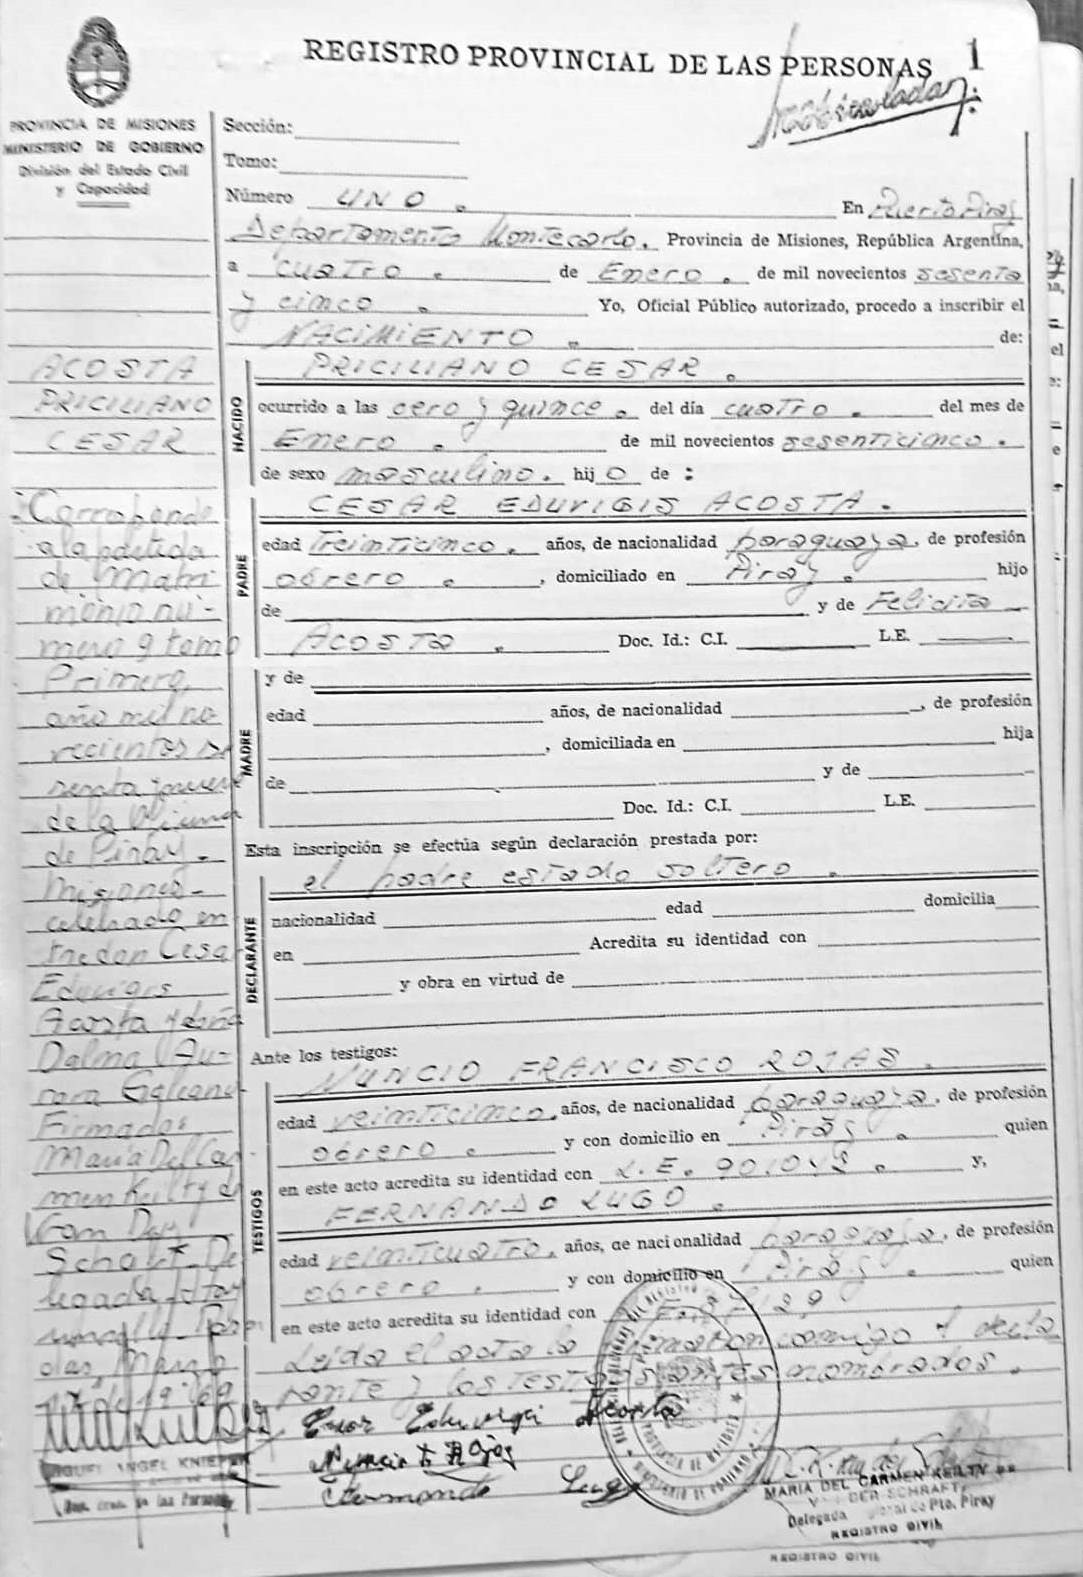 REGISTRO PROVINCIAL DE LAS PERSONAS 1
PROVINCIA DE MISIONES
MINISTERIO DE GOBIERNO
División del Estado Civil
y Capacidad
Sección:
Tomo:
Número UNO. En Puerto Piray
Departamento Montecarlo. Provincia de Misiones, República Argentina,
a cuatro. de Enero. de mil novecientos sesenta
y cinco. Yo, Oficial Público autorizado, procedo a inscribir el
NACIMIENTO de:
ACOSTA
PRICILIANO
CESAR
NACIDO
PRICILIANO CESAR.
ocurrido a las cero y quince. del día cuatro. del mes de
Enero. de mil novecientos sesenticinco.
de sexo masculino. hijo de:
PADRE
CESAR EDUVIGIS ACOSTA.
edad Treinticinco. años, de nacionalidad paraguaya, de profesión
obrero. , domiciliado en Piray. hijo
de y de Felicita
Acosta. Doc. Id.: C.I. L.E.
MADRE
y de
edad años, de nacionalidad , de profesión
, domiciliada en hija
de y de
Doc. Id.: C.I. L.E.
Esta inscripción se efectúa según declaración prestada por:
el padre estado soltero.
DECLARANTE
nacionalidad edad domicilia
en Acredita su identidad con
y obra en virtud de
Ante los testigos:
NUNCIO FRANCISCO ROJAS.
TESTIGOS
edad veinticinco, años, de nacionalidad paraguaya, de profesión
obrero. y con domicilio en Piray. quien
en este acto acredita su identidad con L.E. y,
FERNANDO LUGO.
edad veinticuatro, años, de nacionalidad paraguaya, de profesión
obrero. y con domicilio en Piray. quien
en este acto acredita su identidad con
Leida el acta la firman conmigo el decla
rante y los testigos antes nombrados.
Corresponde
a la partida
de Matri
monio nú-
mero 9 tomo
Primero,
año mil no
vecientos se
senta y nueve
de la Oficina
de Piray.
Misiones-
celebrado en
tre don Cesar
Eduvigis
Acosta y doña
Dalma Au-
rora Galeano
Firmados
Maria Del Car
men Keilty de
Van Der
Schraft De
legada
Marzo
17 de 1969
MIGUEL ANGEL KNIEPER
Acosta
Rojas
Lugo
MARIA DEL CARMEN KEILTY DE
VAN DER SCHRAFT
Delegada de Pto. Piray
REGISTRO CIVIL
REGISTRO CIVIL
PROVINCIA DE MISIONES
MINISTERIO DE GOBIERNO